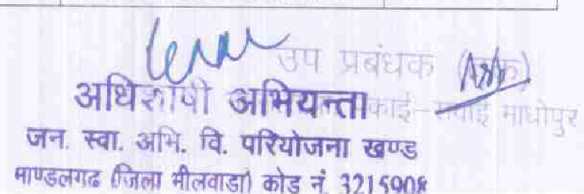 उप प्रबंधक
अधिशाषी अभियन्ता काई-सवाई माधोपुर
जन. स्वा. अभि. वि. परियोजना खण्ड
माण्डलगढ (जिला भीलवाडा) कोड नं. 3215908